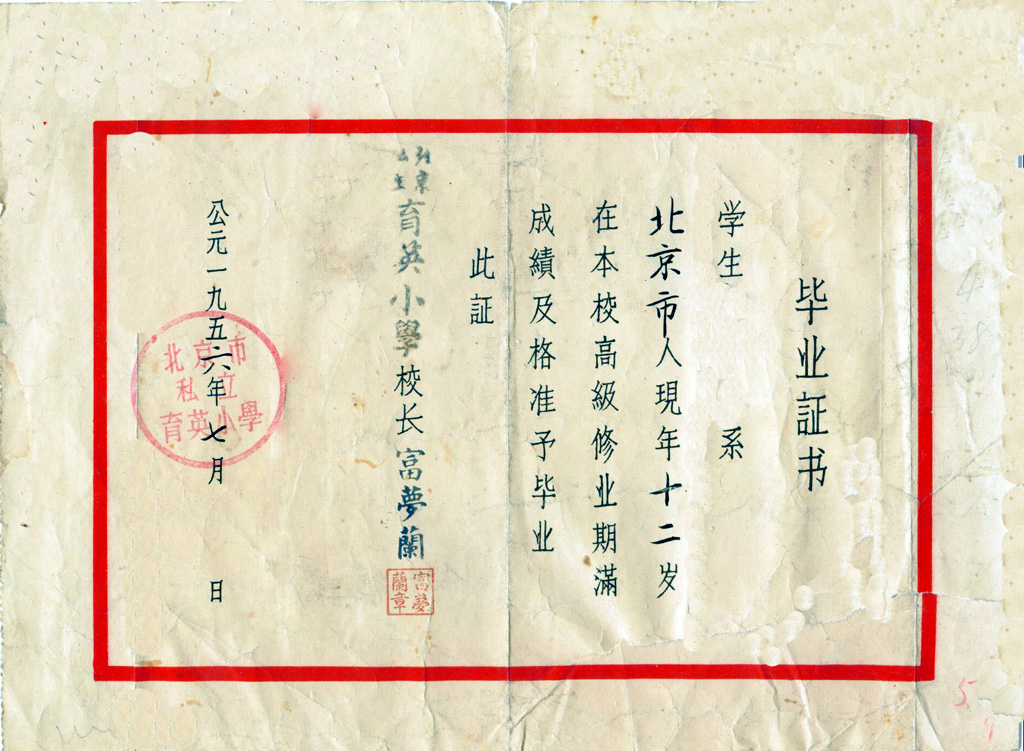 毕业証书
学生 系
北京市人現年十二岁
在本校高級修业期滿
成績及格准予毕业
此証
北京私立育英小學校长富夢蘭
富夢蘭章
公元一九五六年七月 日
北京市
私立
育英小學